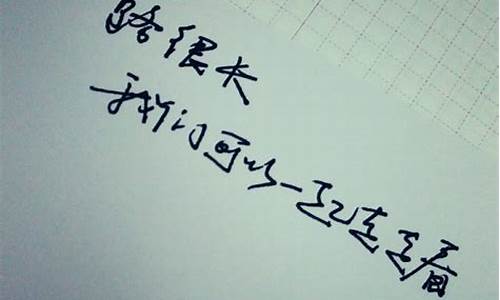 路很长
我们可以一起走走看